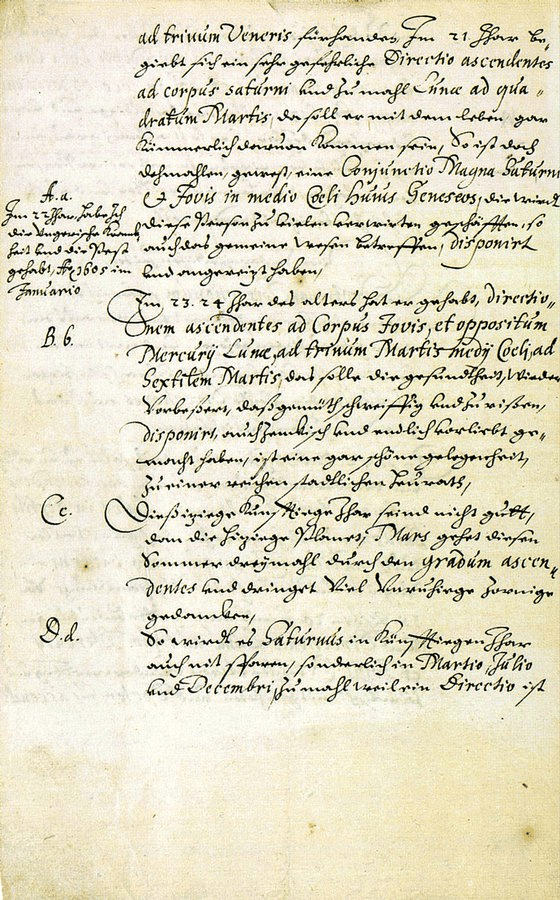 ad trinum Veneris fürhanden, Im 21 Jhar be-
giebt sich ein sehr gefehrliche Directio ascendentes
ad corpus saturni vnd zumahl Lunæ ad qua-
dratum Martis, da soll er mit dem leben, gar
kümmerlich daruon kommen sein, So ist doch
dehmahlen, gewest, eine Conjunctio Magna Saturni
et Jovis in medio Coeli huius Geneseos, die wirdt
diese Person zu vielen verwirten geschäfften, so
auch das gemeine wesen betreffen, disponirt
vnd angereizt haben,
A. a.
Im 22 Jhar, habe ich
die Vngerische Kranck
heit vnd die Pest
gehabt, Ao 1605 im
Januario
Im 23. 24 Jhar des alters hat er gehabt, directio-
nem ascendentes ad Corpus Jovis, et oppositum
Mercurÿ Lunæ, ad trinum Martis medÿ Coeli, ad
Sextilem Martis, das solle die gesundtheit, wieder
verbeßert, daß gemüth schweiffig vnd zurißen,
disponirt, auch zenckisch vnd endlich verliebt ge-
macht haben, ist eine gar schöne gelegenheit,
zu einer reichen stadtlichen heurath,
B. 6.
Dieß iziege Künfftiege Jhar seind nicht gutt,
dan die hiziege Planet, Mars gehet diesen
Sommer dreÿmahl durch den gradum ascen-
dentes vnd bringet viel Vnruhiege zornige
gedancken,
C c.
So wirdt es Saturnus in Künfftiegen Jhar
auch nit sparen, sonderlich in Martio, Julio
vnd Decembri, zumahl weil ein Directio ist
D. d.